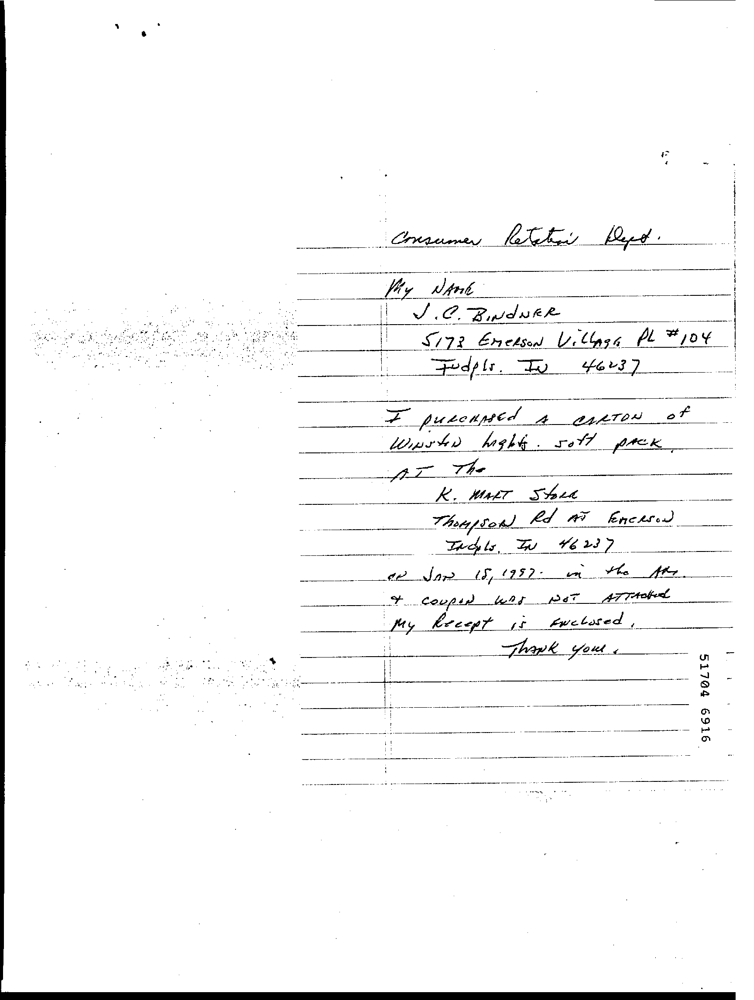 Consumer Retatin Dept.
My Name
J.C. BINDNER
5173 EMERSON VillAgE PL #104
Indpls. IN 46237
I purchased A CARTON of
WINSTON Lights. soft pack.
AT The
K. MART Store
THOMPSON Rd AT EMERSON
Indpls, IN 46237
on JAN 15, 1997. in the
& COUPON WAS NOT ATTACHED
My Recept is Enclosed,
Thank you.
51704 6916